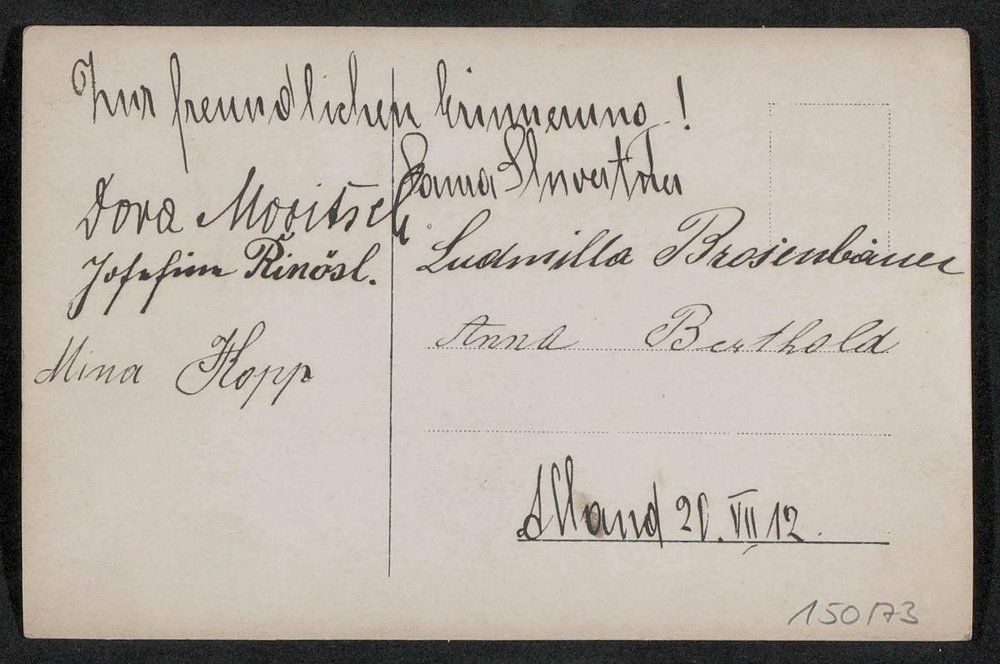 Zur freundlichen Erinnerung!
Dora Moritsch
Josefine Rinösl.
Mina Kopp
Ludmilla Brosenbauer
Anna Berthold
Alland 20. VII 12.
150/73